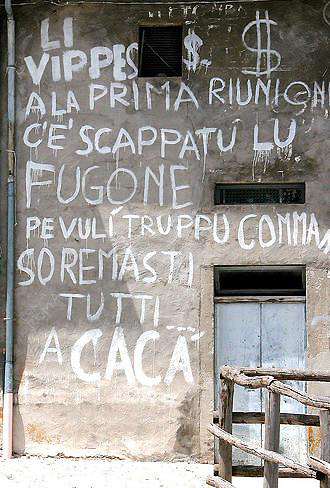 LI $
VIPPES $.
A LA PRIMA RIUNION
C'E' SCAPPATU LU
FUGONE
PE VULÍ TRUPPU COMMA
SO REMASTI
TUTTI
A CACÀ...